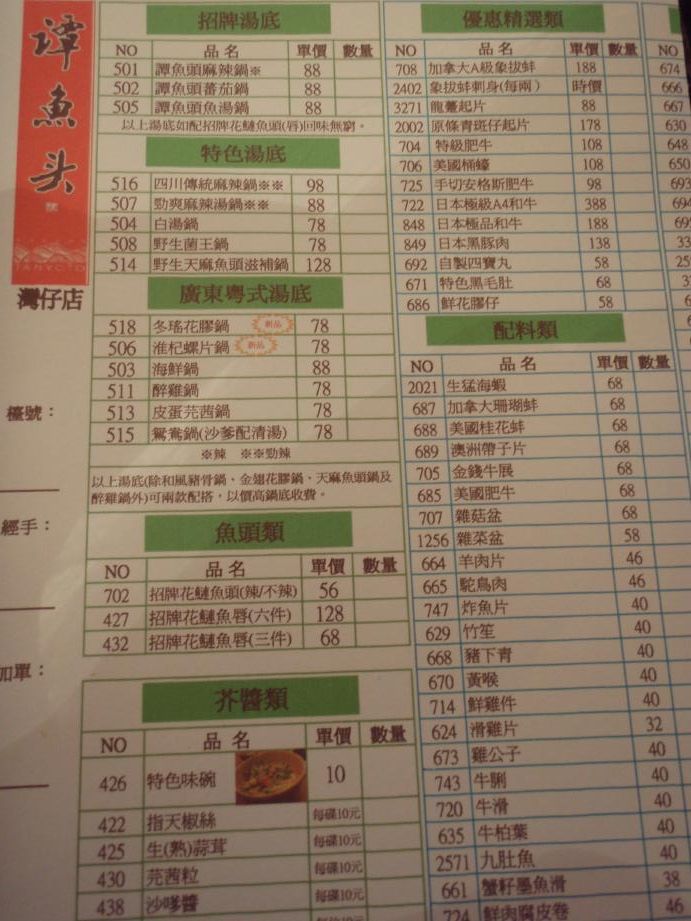 谭鱼头
TANYOTO
灣仔店
檯號：
經手：
加單：
招牌湯底
NO 品名 單價 數量
501 譚魚頭麻辣鍋※ 88
502 譚魚頭蕃茄鍋 88
505 譚魚頭魚湯鍋 88
以上湯底如配招牌花鰱魚頭(唇)回味無窮。
特色湯底
516 四川傳統麻辣鍋※※ 98
507 勁爽麻辣湯鍋※※ 78
504 白湯鍋 78
508 野生菌王鍋 78
514 野生天麻魚頭滋補鍋 128
廣東粵式湯底
518 冬瑤花膠鍋 新品 78
506 淮杞螺片鍋 新品 78
503 海鮮鍋 88
511 醉雞鍋 78
513 皮蛋芫茜鍋 78
515 鴛鴦鍋(沙爹配清湯) 78
※辣 ※※勁辣
以上湯底(除和風豬骨鍋、金翅花膠鍋、天麻魚頭鍋及
醉雞鍋外)可兩款配搭，以價高鍋底收費。
魚頭類
NO 品名 單價 數量
702 招牌花鰱魚頭(辣/不辣) 56
427 招牌花鰱魚唇(六件) 128
432 招牌花鰱魚唇(三件) 68
芥醬類
NO 品名 單價 數量
426 特色味碗 10
422 指天椒絲 每碟10元
425 生(熟)蒜茸 每碟10元
430 芫茜粒 每碟10元
438 沙嗲醬 每碟10元
優惠精選類
NO 品名 單價 數量
708 加拿大A級象拔蚌 188
2402 象拔蚌刺身(每兩) 時價
3271 龍躉起片 88
2002 原條青斑仔起片 178
704 特級肥牛 108
706 美國桶蠔 108
725 手切安格斯肥牛 98
722 日本極級A4和牛 388
848 日本極品和牛 188
849 日本黑豚肉 138
692 自製四寶丸 58
671 特色黑毛肚 68
686 鮮花膠仔 58
配料類
NO 品名 單價 數量
2021 生猛海蝦 68
687 加拿大珊瑚蚌 68
688 美國桂花蚌 68
689 澳洲帶子片 68
705 金錢牛展 68
685 美國肥牛 68
707 雜菇盆 68
1256 雜菜盆 58
664 羊肉片 46
665 鴕鳥肉 46
747 炸魚片 40
629 竹笙 40
668 豬下青 40
670 黃喉 40
714 鮮雞件 40
624 滑雞片 32
673 雞公子 40
743 牛脷 40
720 牛滑 40
635 牛柏葉 40
2571 九肚魚 40
661 蟹籽墨魚滑 38
724 鮮肉腐皮卷 46
NO
674
666
667
630
648
650
693
694